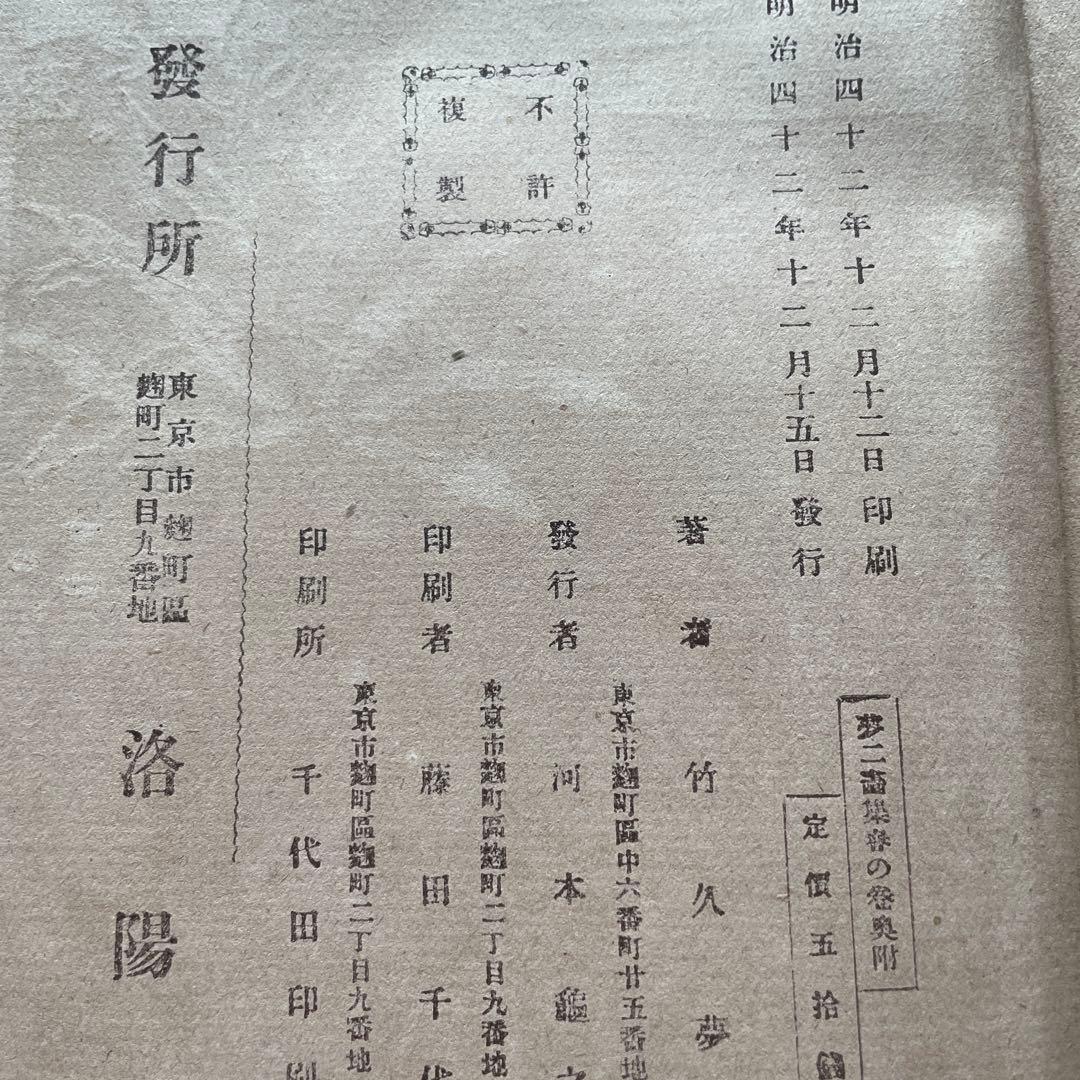 明治四十二年十二月十二日印刷
明治四十二年十二月十五日發行
不許
複製
夢二畫集春の卷奧附
定價五拾錢
著者 竹久夢
東京市麹町區中六番町廿五番地
發行者 河本龜之
東京市麹町區麹町二丁目九番地
印刷者 藤田千代
東京市麹町區麹町二丁目九番地
印刷所 千代田印刷
發行所
東京市麹町區
麹町二丁目九番地
洛陽